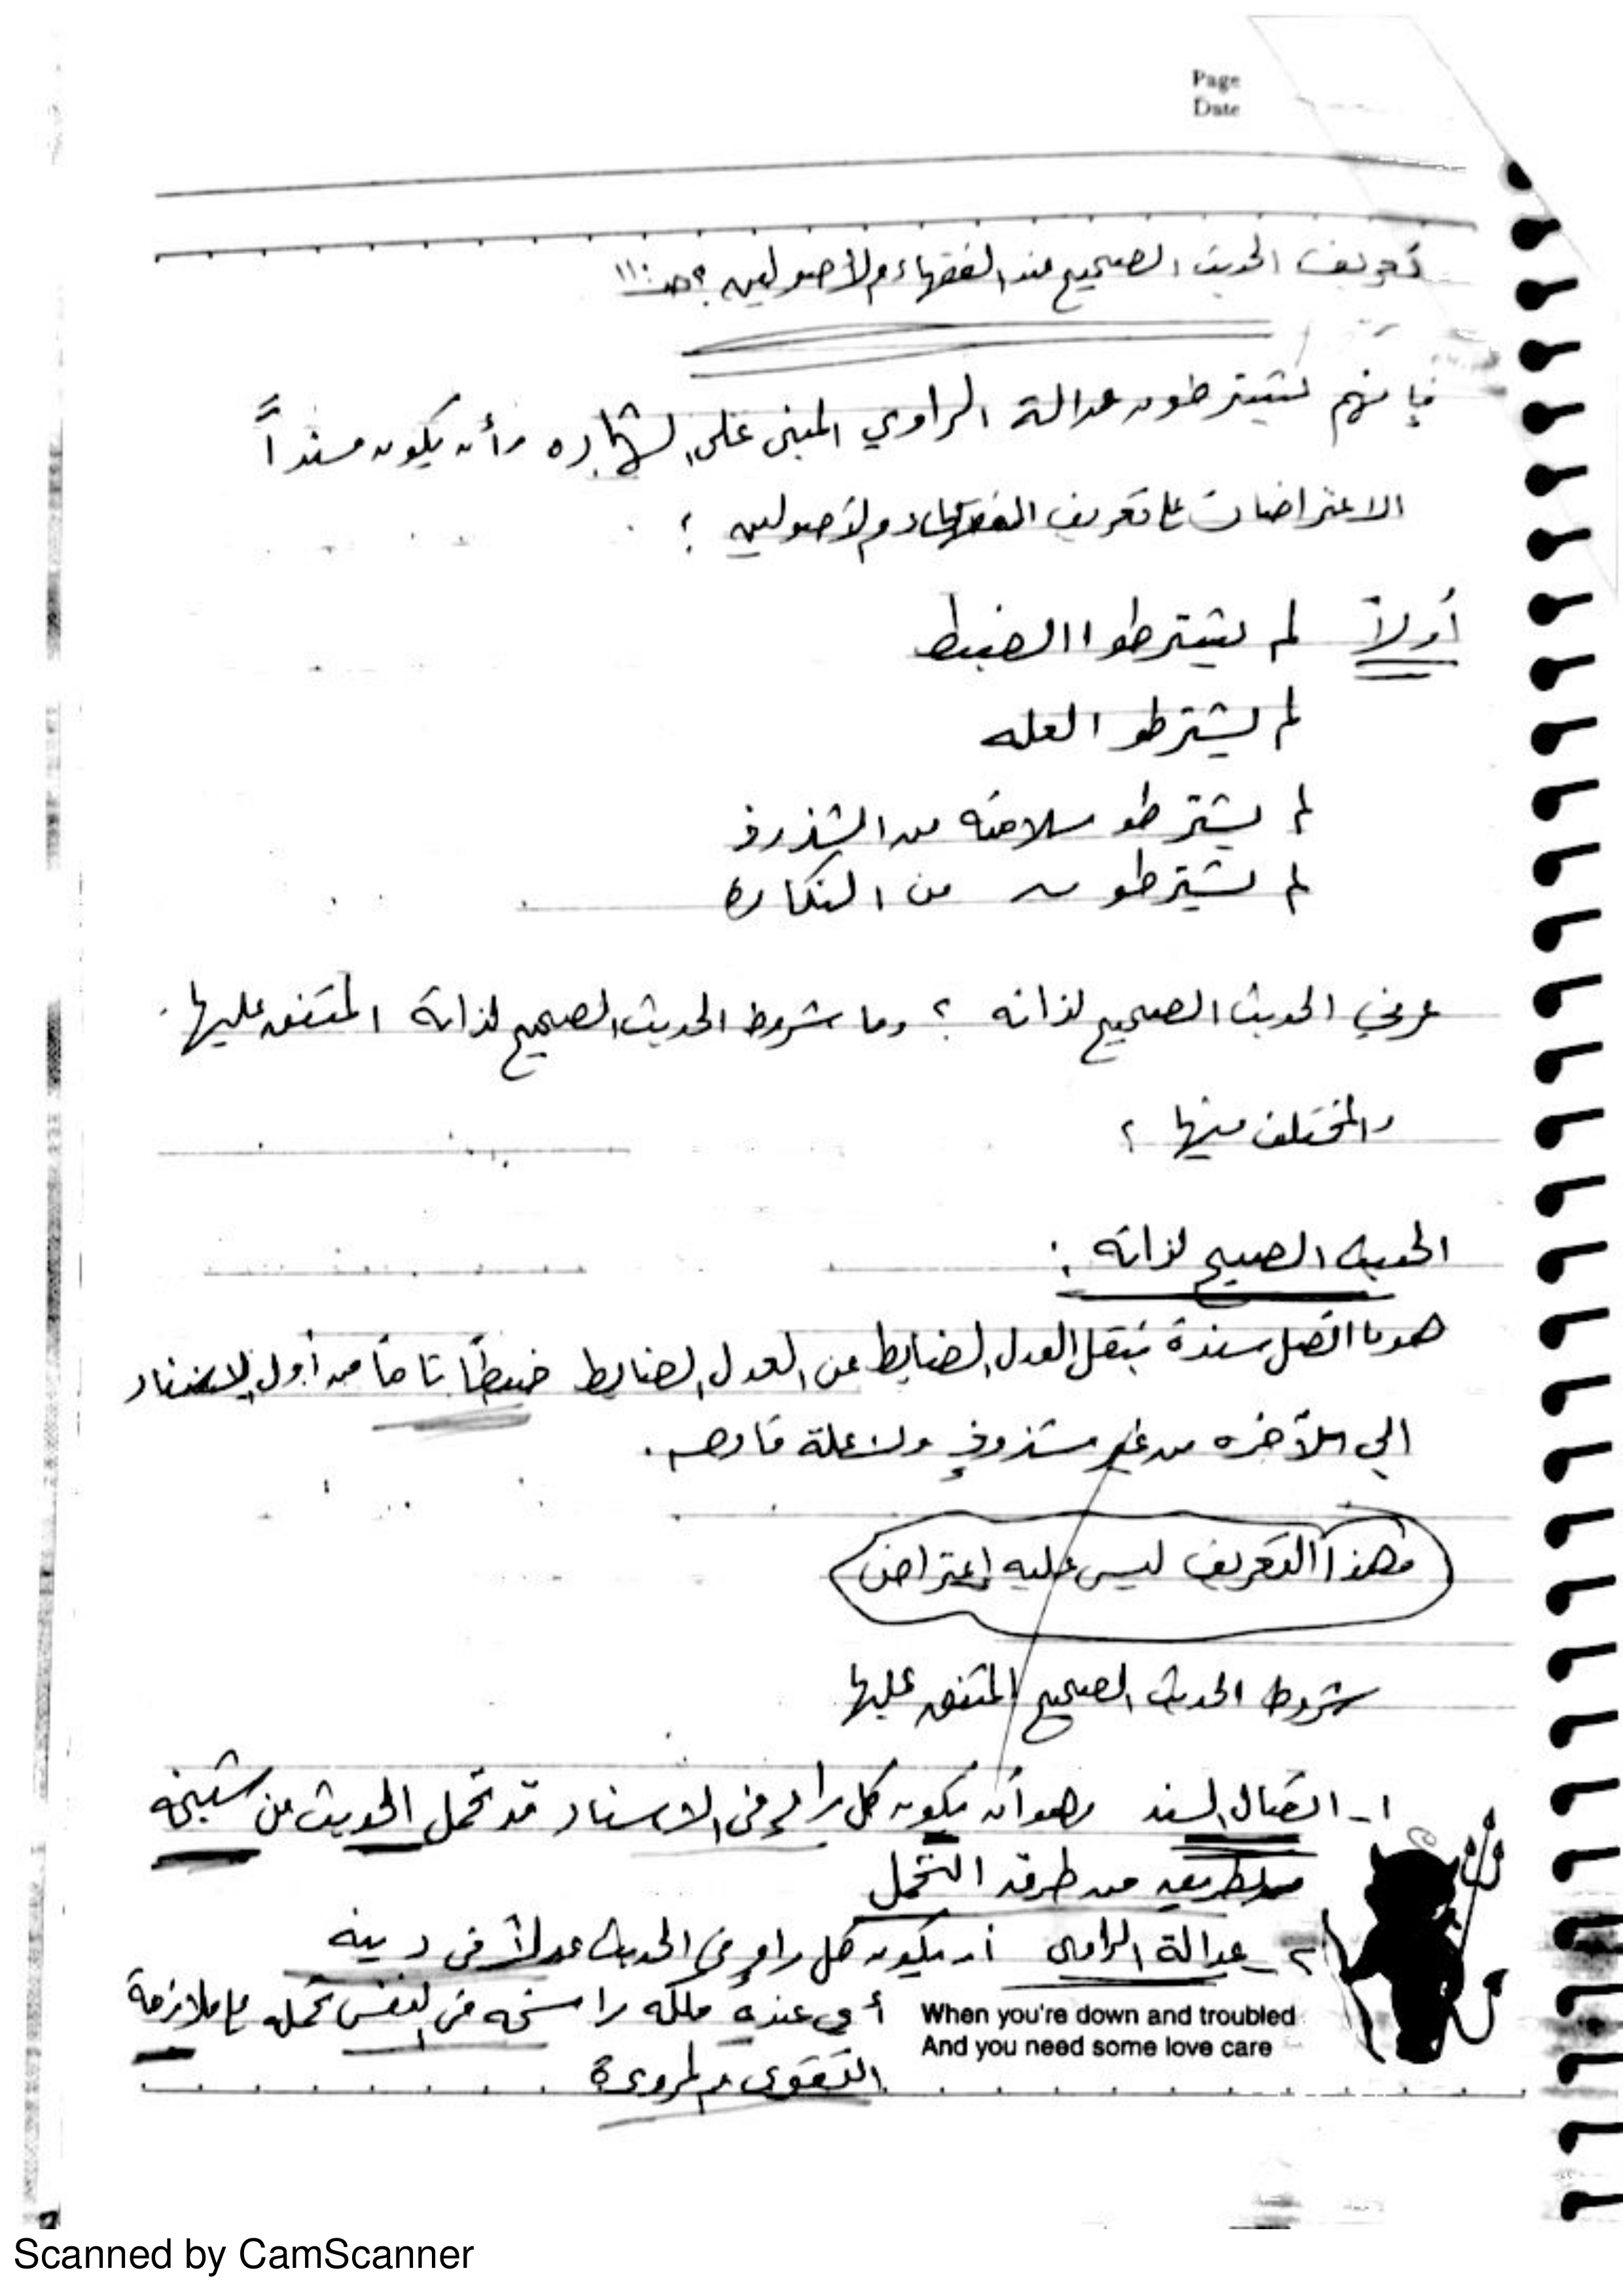 Page
Date
تعريف الحديث الصحيح عند الفقهاء والأصوليين ؟ صـ ١١٠
فإنهم يشترطون عدالة الراوي المبني على الشهاده وأن يكون مسنداً
الاعتراضات على تعريف الفقهاء والأصوليين :
أولاً لم يشترطوا الضبط
لم يشترطو العله
لم يشترطو سلامته من الشذوذ
لم يشترطو من النكاره
عرفي الحديث الصحيح لذاته ؟ وما شروط الحديث الصحيح لذاته المتفق عليها
والمختلف فيها ؟
الحديث الصحيح لذاته :
هو ما اتصل سندة بنقل العدل الضابط عن العدل الضابط ضبطاً تاماً من أول الاسناد
الي الآخره من غير شذوذٍ ولا علة قادحه .
وهذا التعريف ليس عليه إعتراض
شروط الحديث الصحيح المتفق عليها
١- اتصال السند وهو أن يكون كل راوٍ في الاسناد قد تحمل الحديث عن شيخه
بطريق من طرق التحمل
٢- عدالة الراوى أن يكون كل راوٍ في الحديث عدلاً في دينه
أي عنده ملكه راسخه في النفس تحمله على ملازمة
التقوى والمروءة
When you're down and troubled
And you need some love care
Scanned by CamScanner